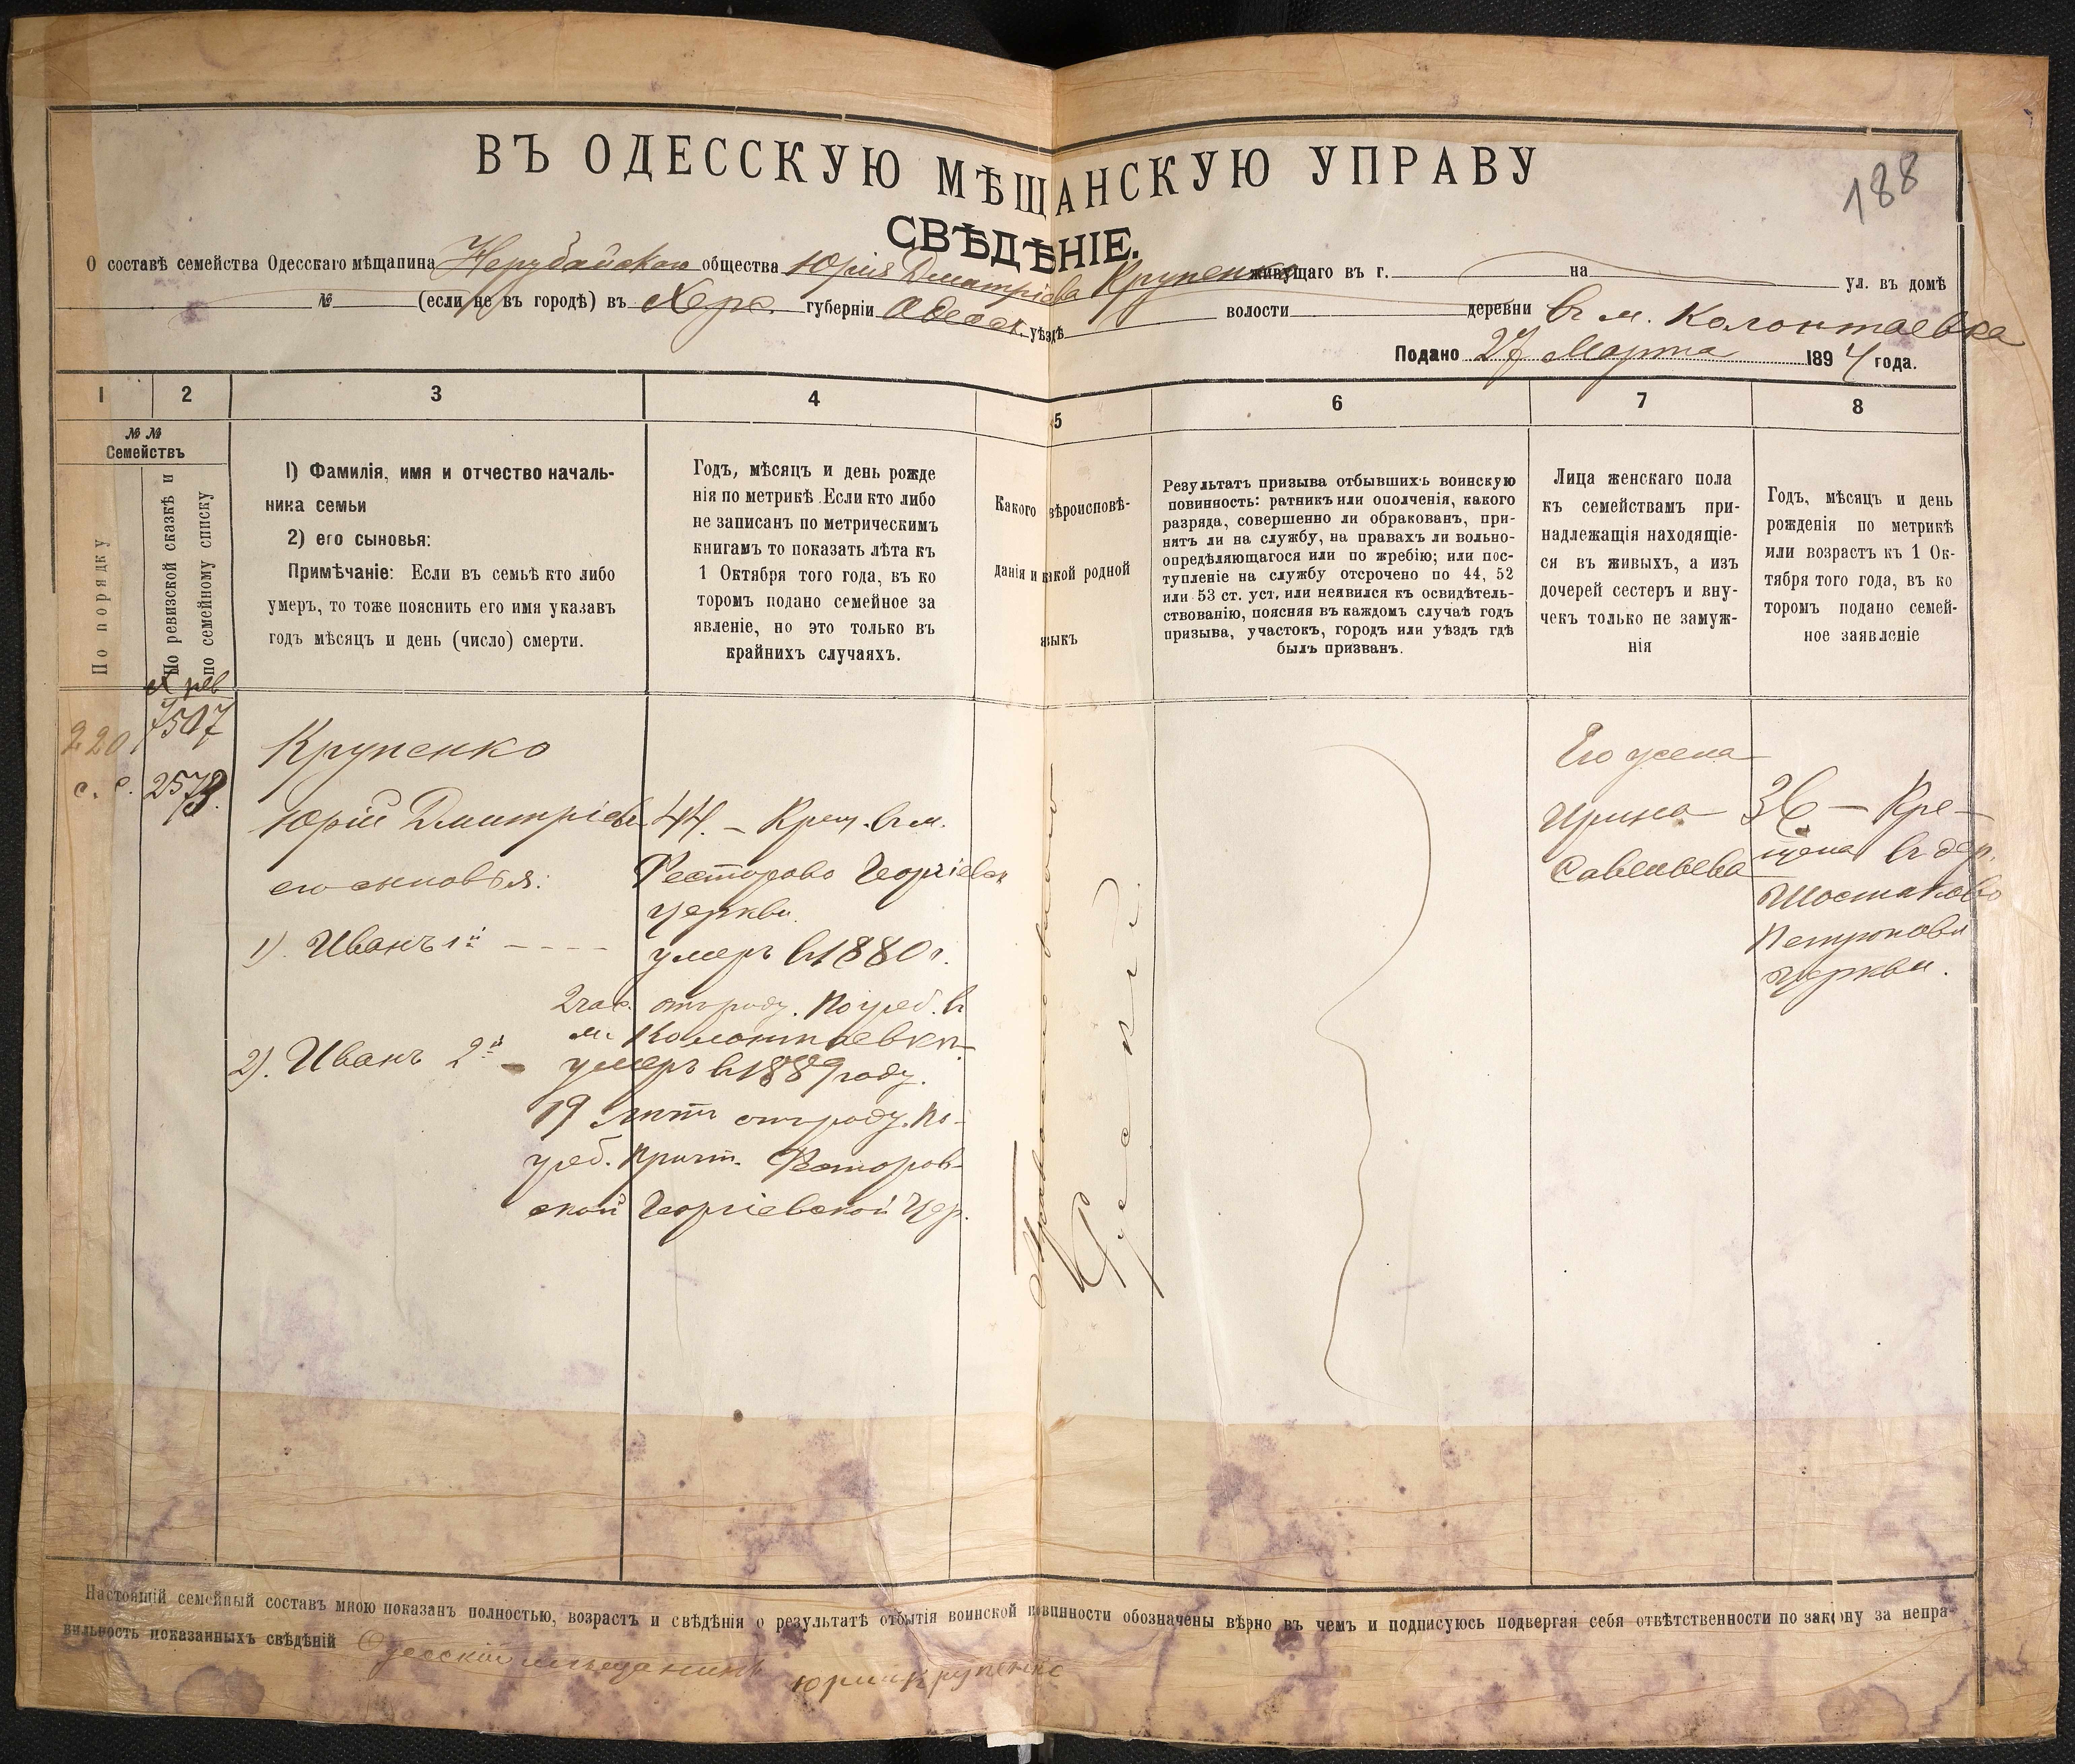 188
ВЪ ОДЕССКУЮ МѢЩАНСКУЮ УПРАВУ
СВѢДѢНІЕ.
О составѣ семейства Одесскаго мѣщанина Нерубайскаго общества Юрія Дмитріева Крупенко живущаго въ г. на ул. въ домѣ
№ (если не въ городѣ) въ Херс. губерніи Одесск. уѣздѣ волости деревни в м. Колонтаевка
Подано 27 Марта 1894 года.
1 2 3 4 5 6 7 8
№ № Семействъ
По порядку
По ревизской сказкѣ и
по семейному списку
1) Фамилія, имя и отчество началь-
ника семьи
2) его сыновья:
Примѣчаніе: Если въ семьѣ кто либо
умеръ, то тоже пояснить его имя указавъ
годъ мѣсяцъ и день (число) смерти.
Годъ, мѣсяцъ и день рожде
нія по метрикѣ. Если кто либо
не записанъ по метрическимъ
книгамъ то показать лѣта къ
1 Октября того года, въ ко
торомъ подано семейное за
явленіе, но это только въ
крайнихъ случаяхъ.
Какого вѣроисповѣ-
данія и какой родной
языкъ
Результатъ призыва отбывшихъ воинскую
повинность: ратникъ или ополченія, какого
разряда, совершенно ли обракованъ, при-
нятъ ли на службу, на правахъ ли вольно-
опредѣляющагося или по жребію; или пос-
тупленіе на службу отсрочено по 44, 52
или 53 ст. уст. или неявился къ освидѣтель-
ствованію, поясняя въ каждомъ случаѣ годъ
призыва, участокъ, городъ или уѣздъ гдѣ
былъ призванъ.
Лица женскаго пола
къ семействамъ при-
надлежащія находящіе-
ся въ живыхъ, а изъ
дочерей сестеръ и вну-
чекъ только не замуж-
нія
Годъ, мѣсяцъ и день
рожденія по метрикѣ
или возрастъ къ 1 Ок-
тября того года, въ ко
торомъ подано семей-
ное заявленіе
X рев
7507
220
с. с. 2573.
Крупенко
Юрій Дмитріевъ
его сыновья:
1). Иванъ 1й
2). Иванъ 2й
44. – Крещ. в м.
Фесторово Георгіевск
церкви.
умеръ в 1880 г.
отъ роду. Погреб. в
м. Колонтаевкѣ.
умеръ в 1889 году.
19 лѣтъ отъ роду. По-
греб. Причт. Фесторов-
ской Георгіевской Цер.
Православнаго
Русскій.
Его жена
Ирина
Савельева
36 – Кре-
щена в дер.
Шостаково
церкви.
Настоящій семейный составъ мною показанъ полностью, возрастъ и свѣдѣнія о результатѣ отбытія воинской повинности обозначены вѣрно въ чемъ и подписуюсь подвергая себя отвѣтственности по закону за непра-
вильность показанныхъ свѣдѣній Одесскій мѣщанинъ
Юрий Крупенко